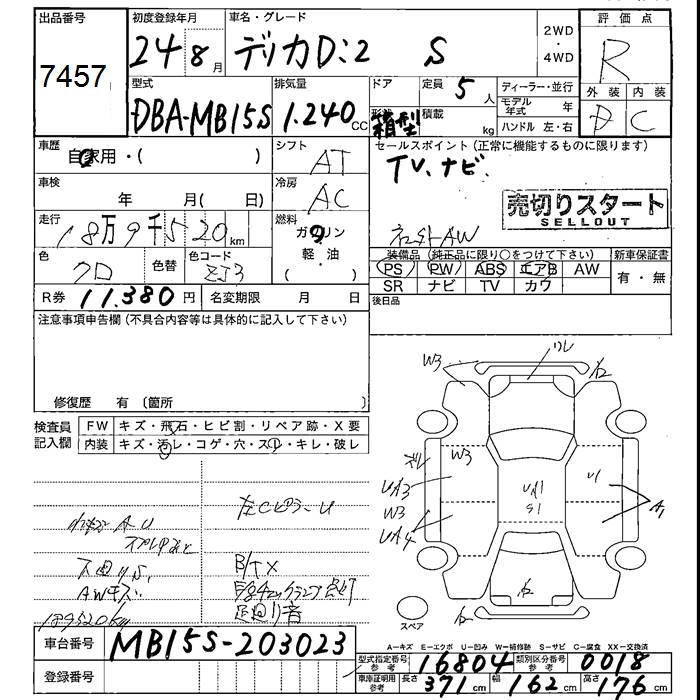 出品番号
7457
初度登録年月
24 8月
車名・グレード
デリカD:2 S
2WD
・
4WD
評価点
R
型式
DBA-MB15S
排気量
1.240cc
ドア
形状
箱型
定員
5人
積載
kg
ディーラー・並行
モデル年式 年
ハンドル 左・右
外装
D
内装
C
車歴
自家用・( )
シフト
AT
セールスポイント(正常に機能するものに限ります)
TV、ナビ、
車検
年 月( 日)
冷房
AC
売切りスタート
SELLOUT
走行
18万9千520km
燃料
ガソリン
軽・油
( )
社外AW
色
クロ
色替
色コード
ZJ3
装備品(純正品に限り○をつけて下さい)
PS PW ABS エアB AW
SR ナビ TV カワ
新車保証書
有・無
R券 11.380円
名変期限 月 日
後日品
注意事項申告欄(不具合内容等は具体的に記入して下さい)
修復歴 有 (箇所
検査員記入欄
FW キズ・飛石・ヒビ割・リペア跡・X要
内装 キズ・汚レ・コゲ・穴・スレ・キレ・破レ
左CピラーU
AWキズ
B/TX
足廻り音
189520km
W3
W3
UA3
W3
UA4
UA1
S1
U1
A1
スペア
A－キズ E－エクボ U－凹み W－補修跡 S－サビ C－腐食 XX－交換済
車台番号
MB15S-203023
登録番号
型式指定番号 参考
16804
類別区分番号 参考
0018
車庫証明用 参考
長さ 371cm
幅 162cm
高さ 176cm